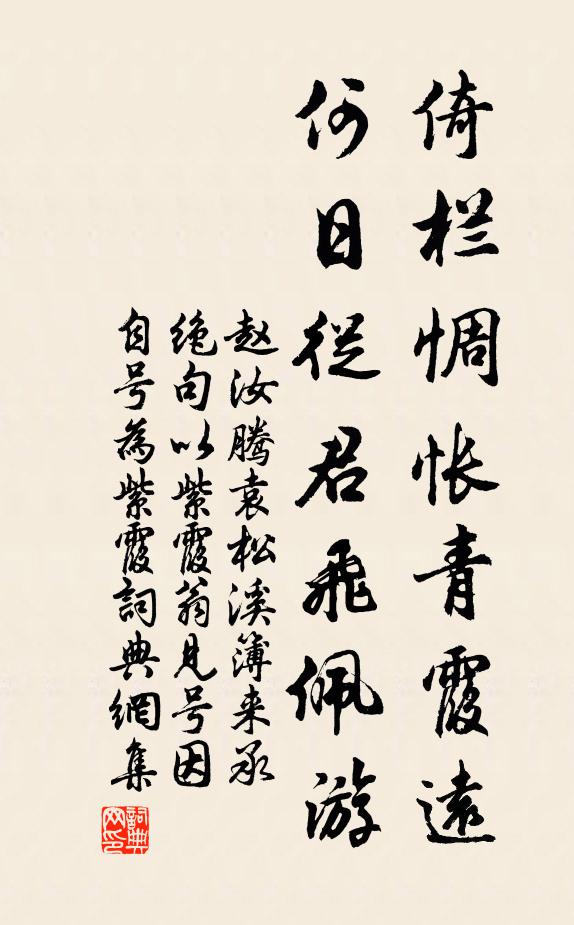 倚栏惆怅青霞远
何日從君飛佩游
赵汝腾袁松溪簿来承
绝句以紫霞翁見号因
自号為紫霞詞典網集
詞典
网印